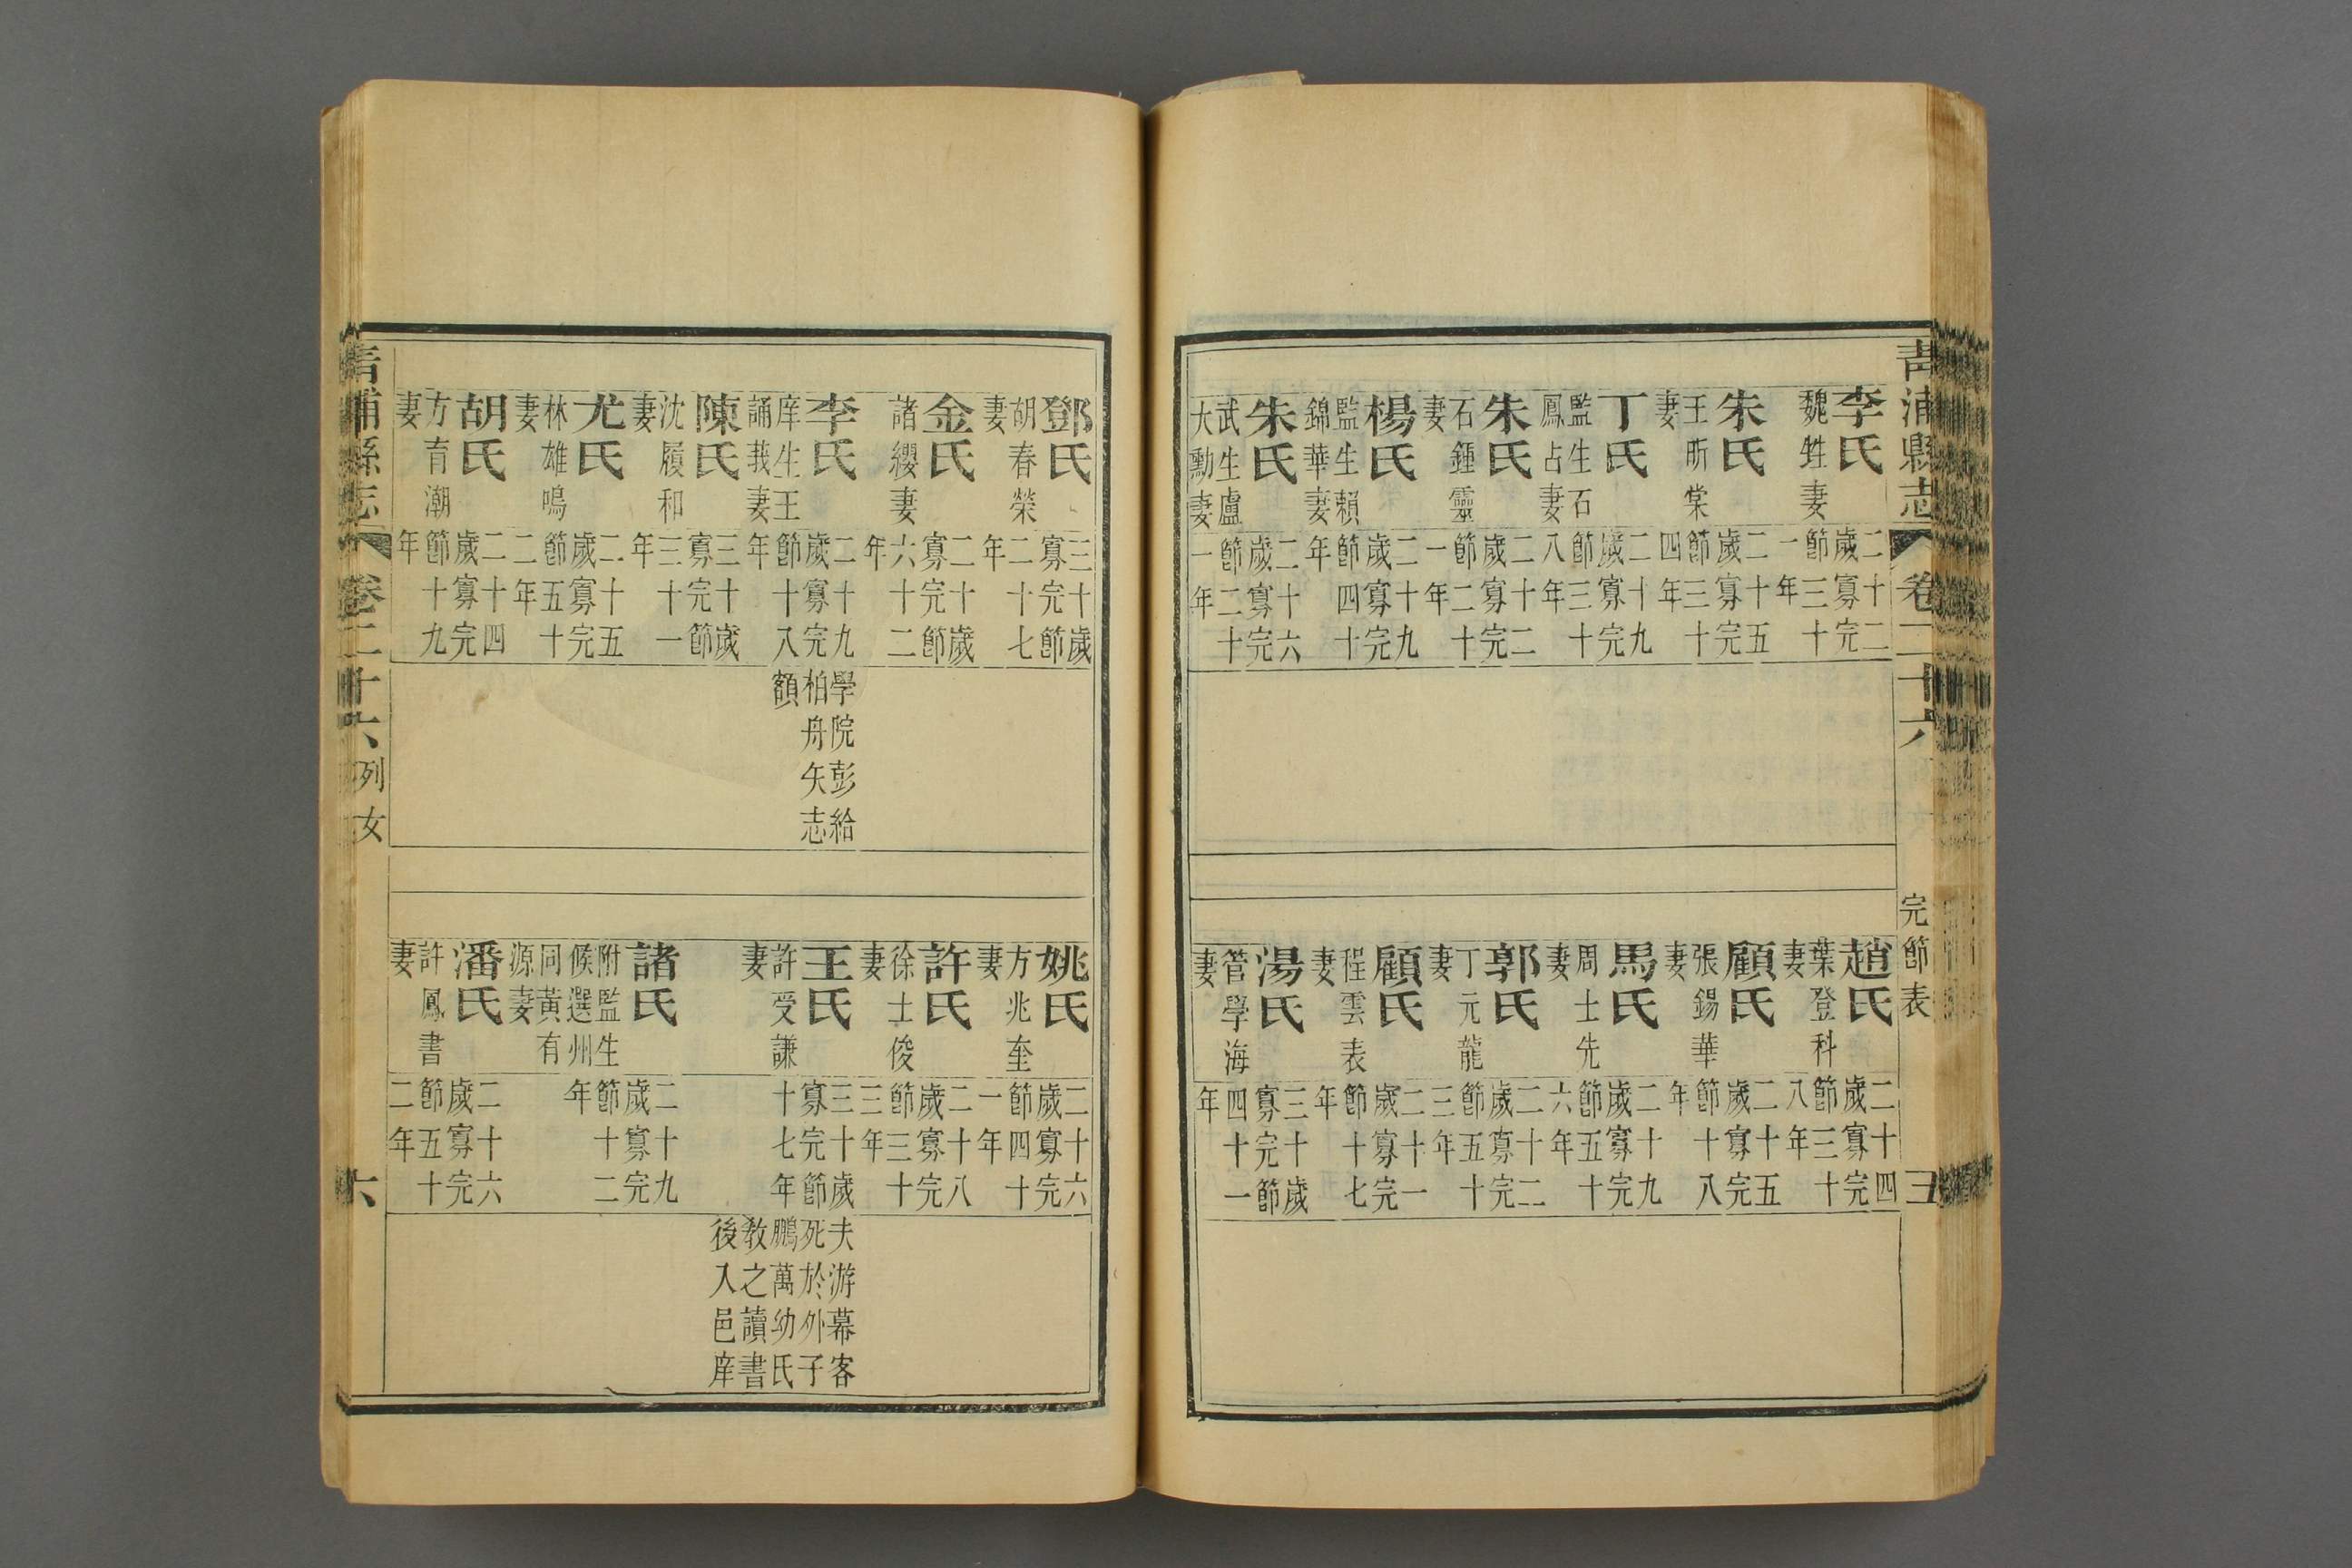 青浦縣志 卷二十六 完節表
李氏
魏甡妻
二十二
歲寡完
節三十
一年
朱氏
王昕棠
妻
二十五
歲寡完
節三十
四年
丁氏
監生石
鳳占妻
二十九
歲寡完
節三十
八年
朱氏
石鍾靈
妻
二十二
歲寡完
節二十
一年
楊氏
監生賴
錦華妻
二十九
歲寡完
節四十
年
朱氏
武生盧
大勳妻
二十六
歲寡完
節二十
一年
趙氏
葉登科
妻
二十四
歲寡完
節三十
八年
顧氏
張錫華
妻
二十五
歲寡完
節十八
年
馬氏
周士先
妻
二十九
歲寡完
節五十
六年
郭氏
丁元龍
妻
二十二
歲寡完
節五十
三年
顧氏
程雲表
妻
二十一
歲寡完
節十七
年
湯氏
管學海
妻
三十歲
寡完節
四十一
年
鄧氏
胡春榮
妻
三十歲
寡完節
二十七
年
金氏
諸纓妻
二十歲
寡完節
六十二
年
李氏
庠生王
誦莪妻
二十九
歲寡完
節十八
年
學院彭給
柏舟矢志
額
陳氏
沈履和
妻
三十歲
寡完節
三十一
年
尤氏
林雄鳴
妻
二十五
歲寡完
節五十
二年
胡氏
方育潮
妻
二十四
歲寡完
節十九
年
姚氏
方兆奎
妻
二十六
歲寡完
節四十
一年
許氏
徐士俊
妻
二十八
歲寡完
節三十
三年
王氏
許受謙
妻
三十歲
寡完節
十七年
夫游幕客
死於外子
鵬萬幼氏
教之讀書
後入邑庠
諸氏
附監生
候選州
同黃有
源妻
二十九
歲寡完
節十二
年
潘氏
許鳳書
妻
二十六
歲寡完
節五十
二年
青浦縣志 卷二十六 列女 六